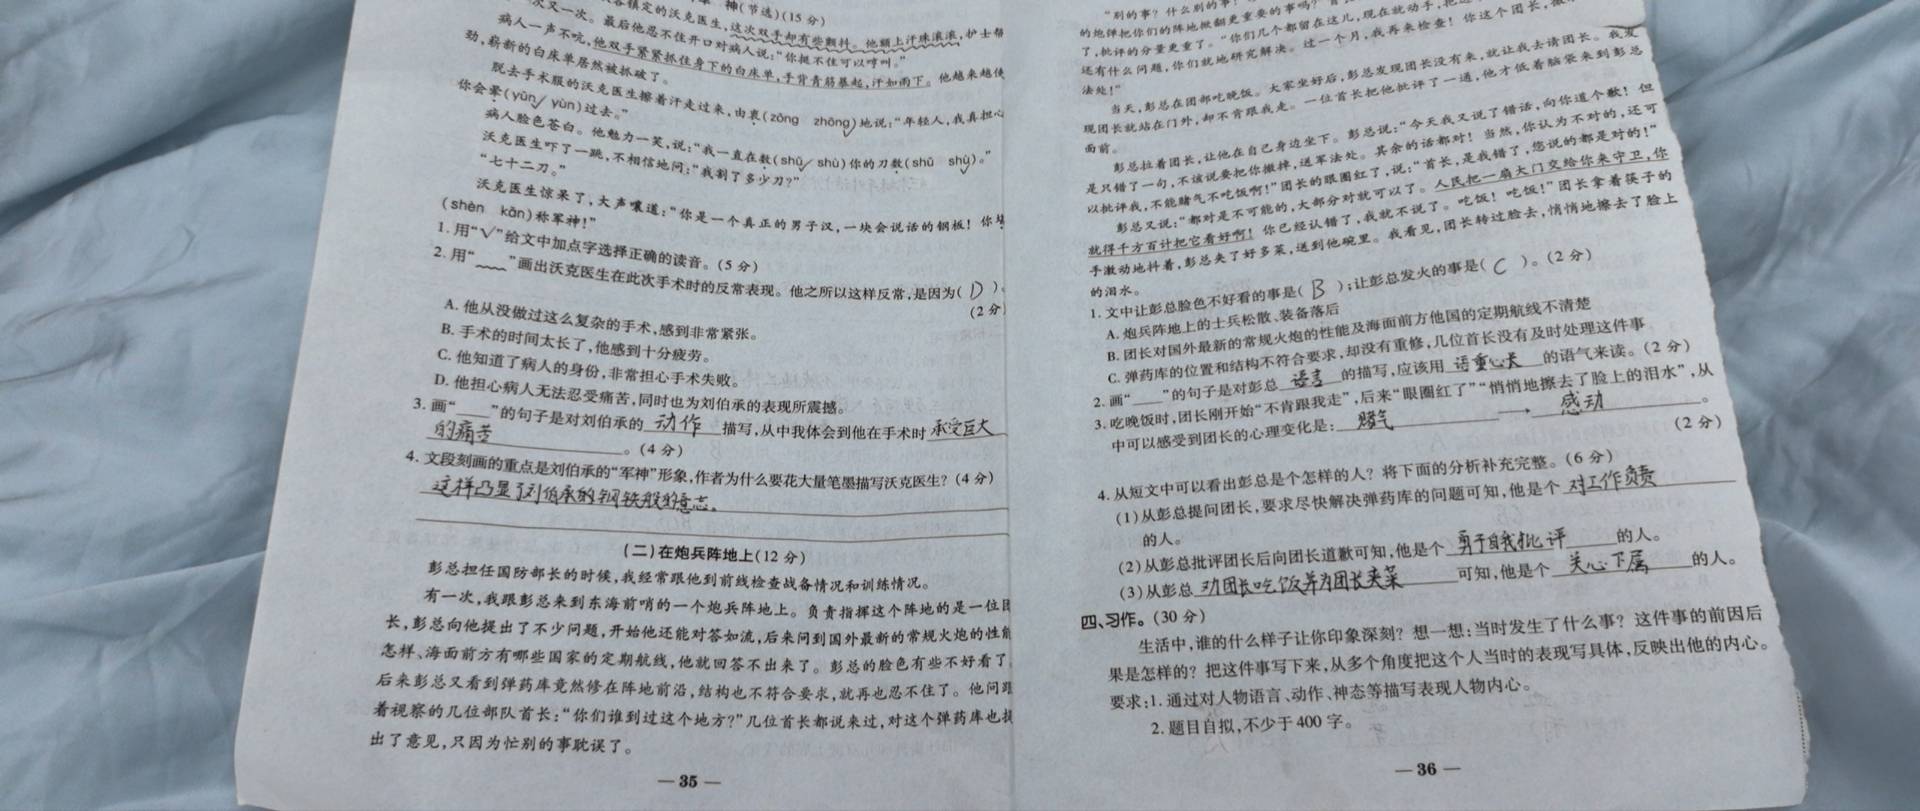 神(节选)(15分)
镇定的沃克医生,这次双手却有些颤抖。他额上汗珠滚滚,护士帮
次又一次。最后他忍不住开口对病人说:“你挺不住可以哼叫。”
病人一声不吭,他双手紧紧抓住身下的白床单,手背青筋暴起,汗如雨下。他越来越使
劲,崭新的白床单居然被抓破了。
脱去手术服的沃克医生擦着汗走过来,由衷(zōng zhōng)地说:“年轻人,我真担心
你会晕(yūn yùn)过去。”
病人脸色苍白。他勉力一笑,说:“我一直在数(shǔ shù)你的刀数(shǔ shù)。”
沃克医生吓了一跳,不相信地问:“我割了多少刀?”
“七十二刀。”
沃克医生惊呆了,大声嚷道:“你是一个真正的男子汉,一块会说话的钢板!你堪
(shèn kān)称军神!”
1.用“√”给文中加点字选择正确的读音。(5分)
2.用“﹏﹏”画出沃克医生在此次手术时的反常表现。他之所以这样反常,是因为( D )。
(2分)
A.他从没做过这么复杂的手术,感到非常紧张。
B.手术的时间太长了,他感到十分疲劳。
C.他知道了病人的身份,非常担心手术失败。
D.他担心病人无法忍受痛苦,同时也为刘伯承的表现所震撼。
3.画“____”的句子是对刘伯承的 动作 描写,从中我体会到他在手术时 承受巨大
的痛苦 。(4分)
4.文段刻画的重点是刘伯承的“军神”形象,作者为什么要花大量笔墨描写沃克医生?(4分)
这样凸显了刘伯承的钢铁般的意志。
(二)在炮兵阵地上(12分)
彭总担任国防部长的时候,我经常跟他到前线检查战备情况和训练情况。
有一次,我跟彭总来到东海前哨的一个炮兵阵地上。负责指挥这个阵地的是一位团
长,彭总向他提出了不少问题,开始他还能对答如流,后来问到国外最新的常规火炮的性能
怎样、海面前方有哪些国家的定期航线,他就回答不出来了。彭总的脸色有些不好看了
后来彭总又看到弹药库竟然修在阵地前沿,结构也不符合要求,就再也忍不住了。他问跟
着视察的几位部队首长:“你们谁到过这个地方?”几位首长都说来过,对这个弹药库也提
出了意见,只因为忙别的事耽误了。
— 35 —
“别的事?什么别的事?
的炮弹把你们的阵地掀翻更重要的事吗?
了,批评的分量更重了。“你们几个都留在这儿,现在就动手,把
还有什么问题,你们就地研究解决。过一个月,我再来检查!你这个团长,
法处!”
当天,彭总在团部吃晚饭。大家坐好后,彭总发现团长没有来,就让我去请团长。我发
现团长就站在门外,却不肯跟我走。一位首长把他批评了一通,他才低着脑袋来到彭总
面前。
彭总拉着团长,让他在自己身边坐下。彭总说:“今天我又说了错话,向你道个歉!但
是只错了一句,不该说要把你撤掉,送军法处。其余的话都对!当然,你认为不对的,还可
以批评我,不能赌气不吃饭啊!”团长的眼圈红了,说:“首长,是我错了,您说的都是对的!”
彭总又说:“都对是不可能的,大部分对就可以了。人民把一扇大门交给你来守卫,你
就得千方百计把它看好啊!你已经认错了,我就不说了。吃饭!吃饭!”团长拿着筷子的
手激动地抖着,彭总夹了好多菜,送到他碗里。我看见,团长转过脸去,悄悄地擦去了脸上
的泪水。
1.文中让彭总脸色不好看的事是( B );让彭总发火的事是( C )。(2分)
A.炮兵阵地上的士兵松散、装备落后
B.团长对国外最新的常规火炮的性能及海面前方他国的定期航线不清楚
C.弹药库的位置和结构不符合要求,却没有重修,几位首长没有及时处理这件事
2.画“____”的句子是对彭总 语言 的描写,应该用 语重心长 的语气来读。(2分)
3.吃晚饭时,团长刚开始“不肯跟我走”,后来“眼圈红了”“悄悄地擦去了脸上的泪水”,从
中可以感受到团长的心理变化是: 赌气 → 感动 。
(2分)
4.从短文中可以看出彭总是个怎样的人?将下面的分析补充完整。(6分)
(1)从彭总提问团长,要求尽快解决弹药库的问题可知,他是个 对工作负责
的人。
(2)从彭总批评团长后向团长道歉可知,他是个 勇于自我批评 的人。
(3)从彭总 劝团长吃饭并为团长夹菜 可知,他是个 关心下属 的人。
四、习作。(30分)
生活中,谁的什么样子让你印象深刻?想一想:当时发生了什么事?这件事的前因后
果是怎样的?把这件事写下来,从多个角度把这个人当时的表现写具体,反映出他的内心。
要求:1.通过对人物语言、动作、神态等描写表现人物内心。
2.题目自拟,不少于400字。
— 36 —